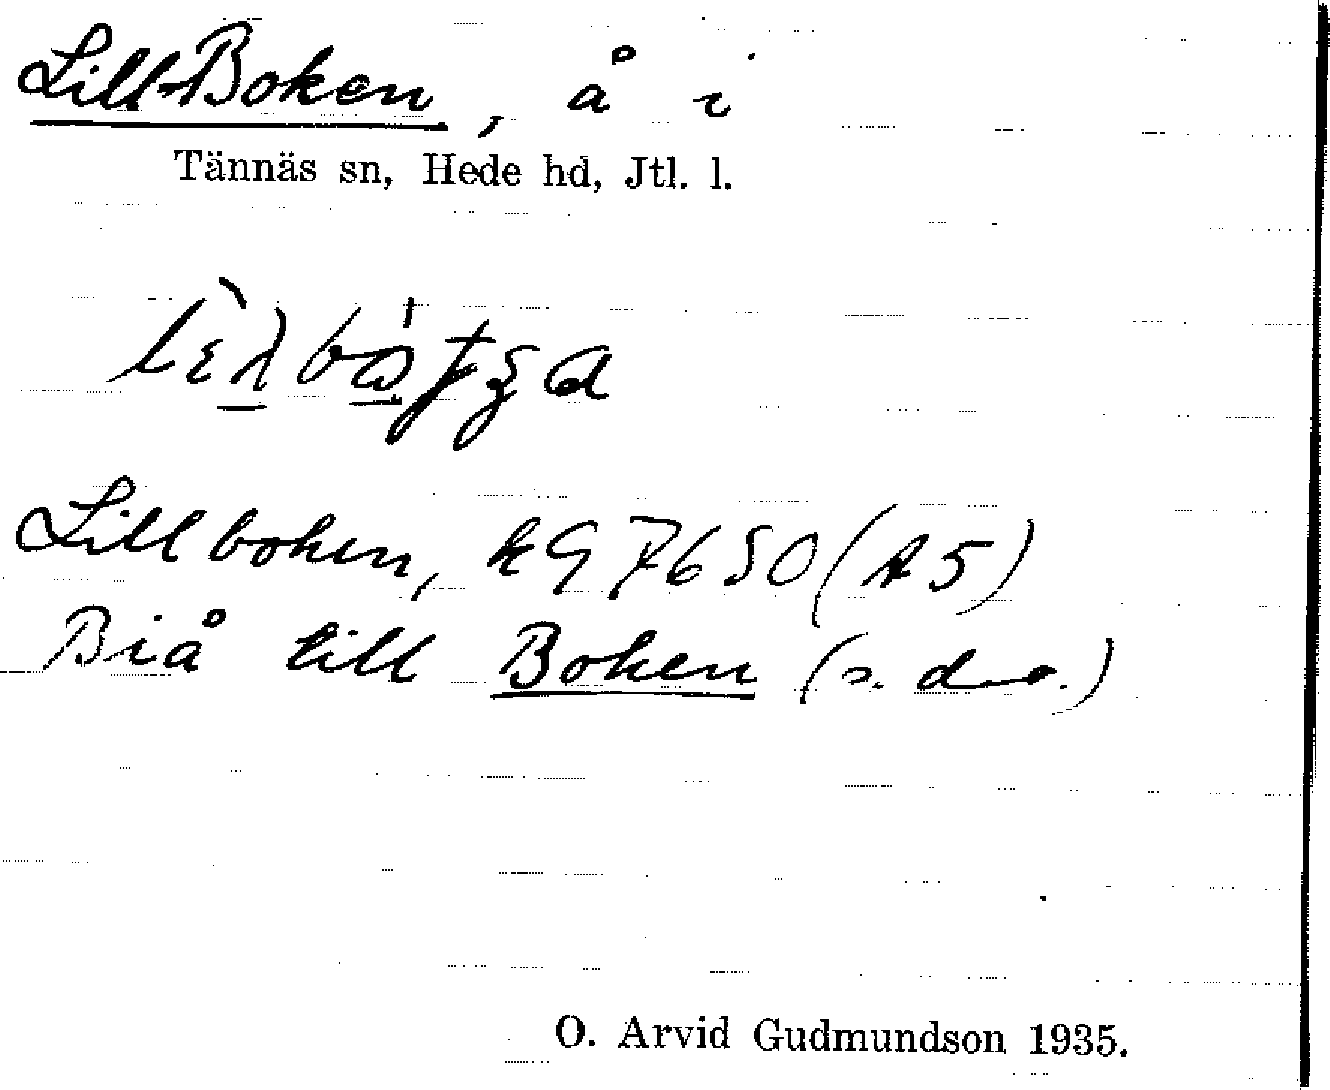 Lill-Boken, å i
Tännäs sn, Hede hd, Jtl. l.
Lillboken, kG 7650 (A5)
Biå till Boken (s. d. o.)
O. Arvid Gudmundson 1935.